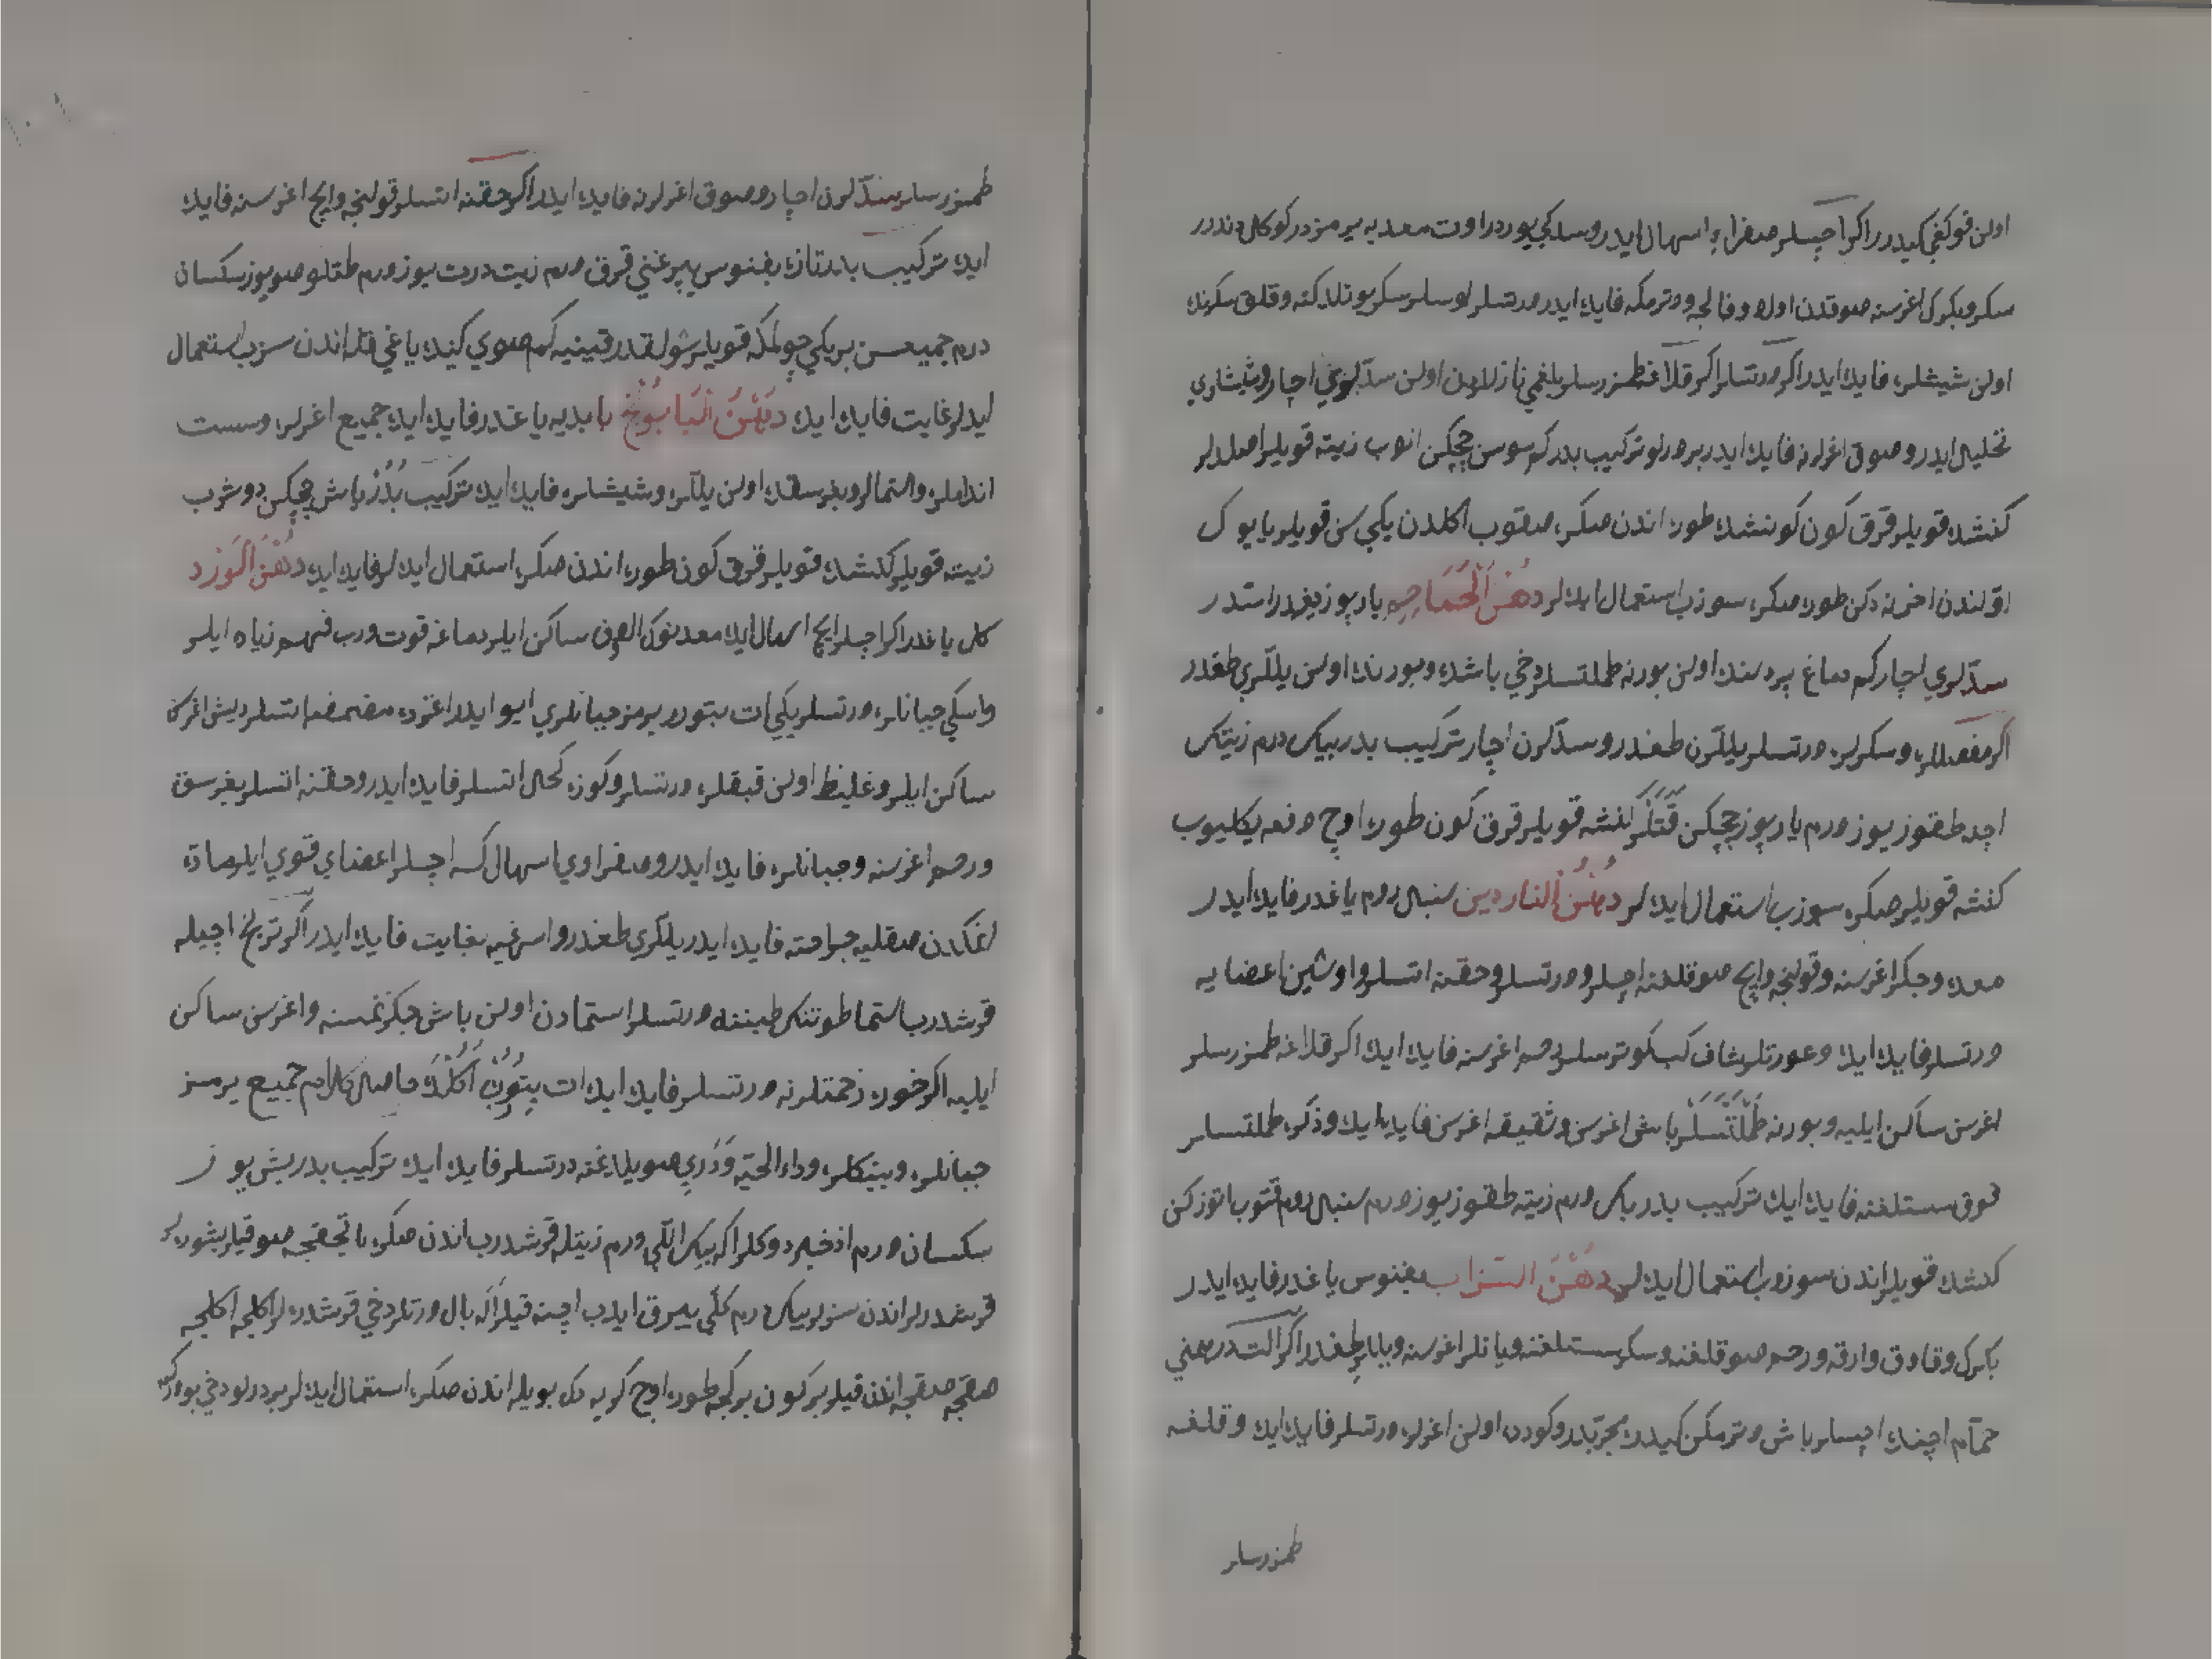 اولن قوكغي كيدرر اكر اچسلر صفرايه اسهال ايدر وسلكي يورد راوت معديه يرمزدر كوكل دندرر
سكر وبكرك اغرسنه صوقدن اولا وفالجه ودترمكه فايده ايدر درتسلر
اولن شيشلره فايده ايدر اكر درتسلر اكر قلاغه طمزرسلر بلغمي نازلادن اولن سدّلري اچار وشيشلري
تحليل ايدر وصوق اغرلرنه فايده ايدر بر درلو تركيب بدركم سوسن چچكن انوب زيته قويلر اصلدلر
كنشده قويلر قرق كون كونشده طوره اندن صكره صقوب اكلدن يكي سن قويلر يا يوك
اولندن اخرنه دكن طوره صكره سوزب استعمال ايدلر دهن الحماحم ياربوز يغدر استدر
سدّلري اچاركم دماغ پردسنده اولن بورنه طملتسلر دخي باشده وبورنده اولن يللري طغدر
اكر مفصللره وسكرلره درتسلر يللرن طغدر وسدّلرن اچار تركيب بدر بيك درم زيتك
اچده طقوز يوز درم ياربوز چچكن قتلر كنشه قويلر قرق كون طوره اوچ دفعه يكليوب
كنشه قويلر صكره سوزب استعمال ايدلر دهن الناردين سنبل روم ياغدر فايده ايدر
معده وجكر اغرسنه وقولنجه وايچ صوقلغنه اچلر ودرتسلر وحقنه اتسلر واوشين اعضايه
درتسلر فايده ايده وعورتلر شاف كبي كوترسلر رحم اغرسنه فايده ايده اكر قلاغه طمزرسلر
اغرسن ساكن ايليه وبورنه طملتسلر باش اغرسن وشقيقه اغرسن فايده ايده وذكره طملتسلر
قوق سستلغنه فايده ايده تركيب بدر بيك درم زيته طقوز يوز درم سنبل روم قتوب اتوز كن
كنشده قويلر اندن سوزوب استعمال ايدلر دهن السزاب بغنوس ياغدر فايده ايدر
بكرك وقاوق وارقه ورحم صوقلغنه وسكر سستلغنه ويانلر اغرسنه وبابلر طغدر اكر التدرهمني
حمّام اچنده اچسلر باش دترمكن كيدرر مجرّبدر وكودده اولن اغرلره درتسلر فايده ايده وقلغه
طمزرسلر
طمزرسلر سدّلرن اچار وصوق اغرلرنه فايده ايدر اكر حقنه اتسلر قولنجه وايچ اغرسنه فايده
ايده تركيب بدر تازه بغنوس يپرغني قرق درم زيت درت يوز درم طتلو صو يوز سكسان
درم جميعسن بر يكي چولمكه قويلر شولقدر قينيه كم صوي كيده ياغي قله اندن سزب استعمال
ايدلر غايت فايده ايده دهن البابونج بابديه ياغدر فايده ايده جميع اغرلره وسست
اندامله واستمالر وبغرسقده اولن يللره وشيشلره فايده ايده تركيب بدر باش چچكن دوشرب
زيته قويلر كنشده قويلر قرق كون طوره اندن صكره استعمال ايدلر فايده ايده دهن الورد
كل ياغدر اكر اچلر ايچ اسهال ايده معدنوك الهبن ساكن ايلر دماغه قوت ورب فهم زياده ايلر
واسكي چبانلره درتسلر يكي ات بتورر يرمز چبانلري ايو ايدر اغزده مضمضه اتسلر ديش اغركا
ساكن ايلر وغليظ اولن قبقلره درتسلر وكوزه كحل اتسلر فايده ايدر وحقنه اتسلر بغرسق
ورحم اغرسنه وچبانلره فايده ايدر وصفراوي اسهال كسه اچسلر اعضاي قوي ايلر
صقليه جراحته فايده ايدر يللري طغدر واسرغيه بغايت فايده ايدر اكر اچيله
قرشدرب استما طوتنك طبننه درتسلر استمادن اولن باش چكزنمسنه واغرسن ساكن
ايليه اكر خوره زحمتلرنه درتسلر فايده ايده ات بتورن اكلده حاصل كلام جميع يرمز
چبانلره وبنكلره وداءالحيّه ودَري صويلدغنه درتسلر فايده ايده تركيب بدر بش يوز
سكسان درم اذخره دوكلر اكر بيك اللي درم زيتله قرشدرب اندن صكره يانجقجه صو قيلر بشورلر
قرشدرلر اندن سزلر بيك درم كلي يپرق ايدب اچنه قيلر اكه بال درتلر دخي قرشدرلر اكلجه اكلجه
صقجه صقجه اندن قيلر بر كون بر كجه طوره اوچ كريه دك بويله اندن صكره استعمال ايدلر بر درلو دخي بودركه